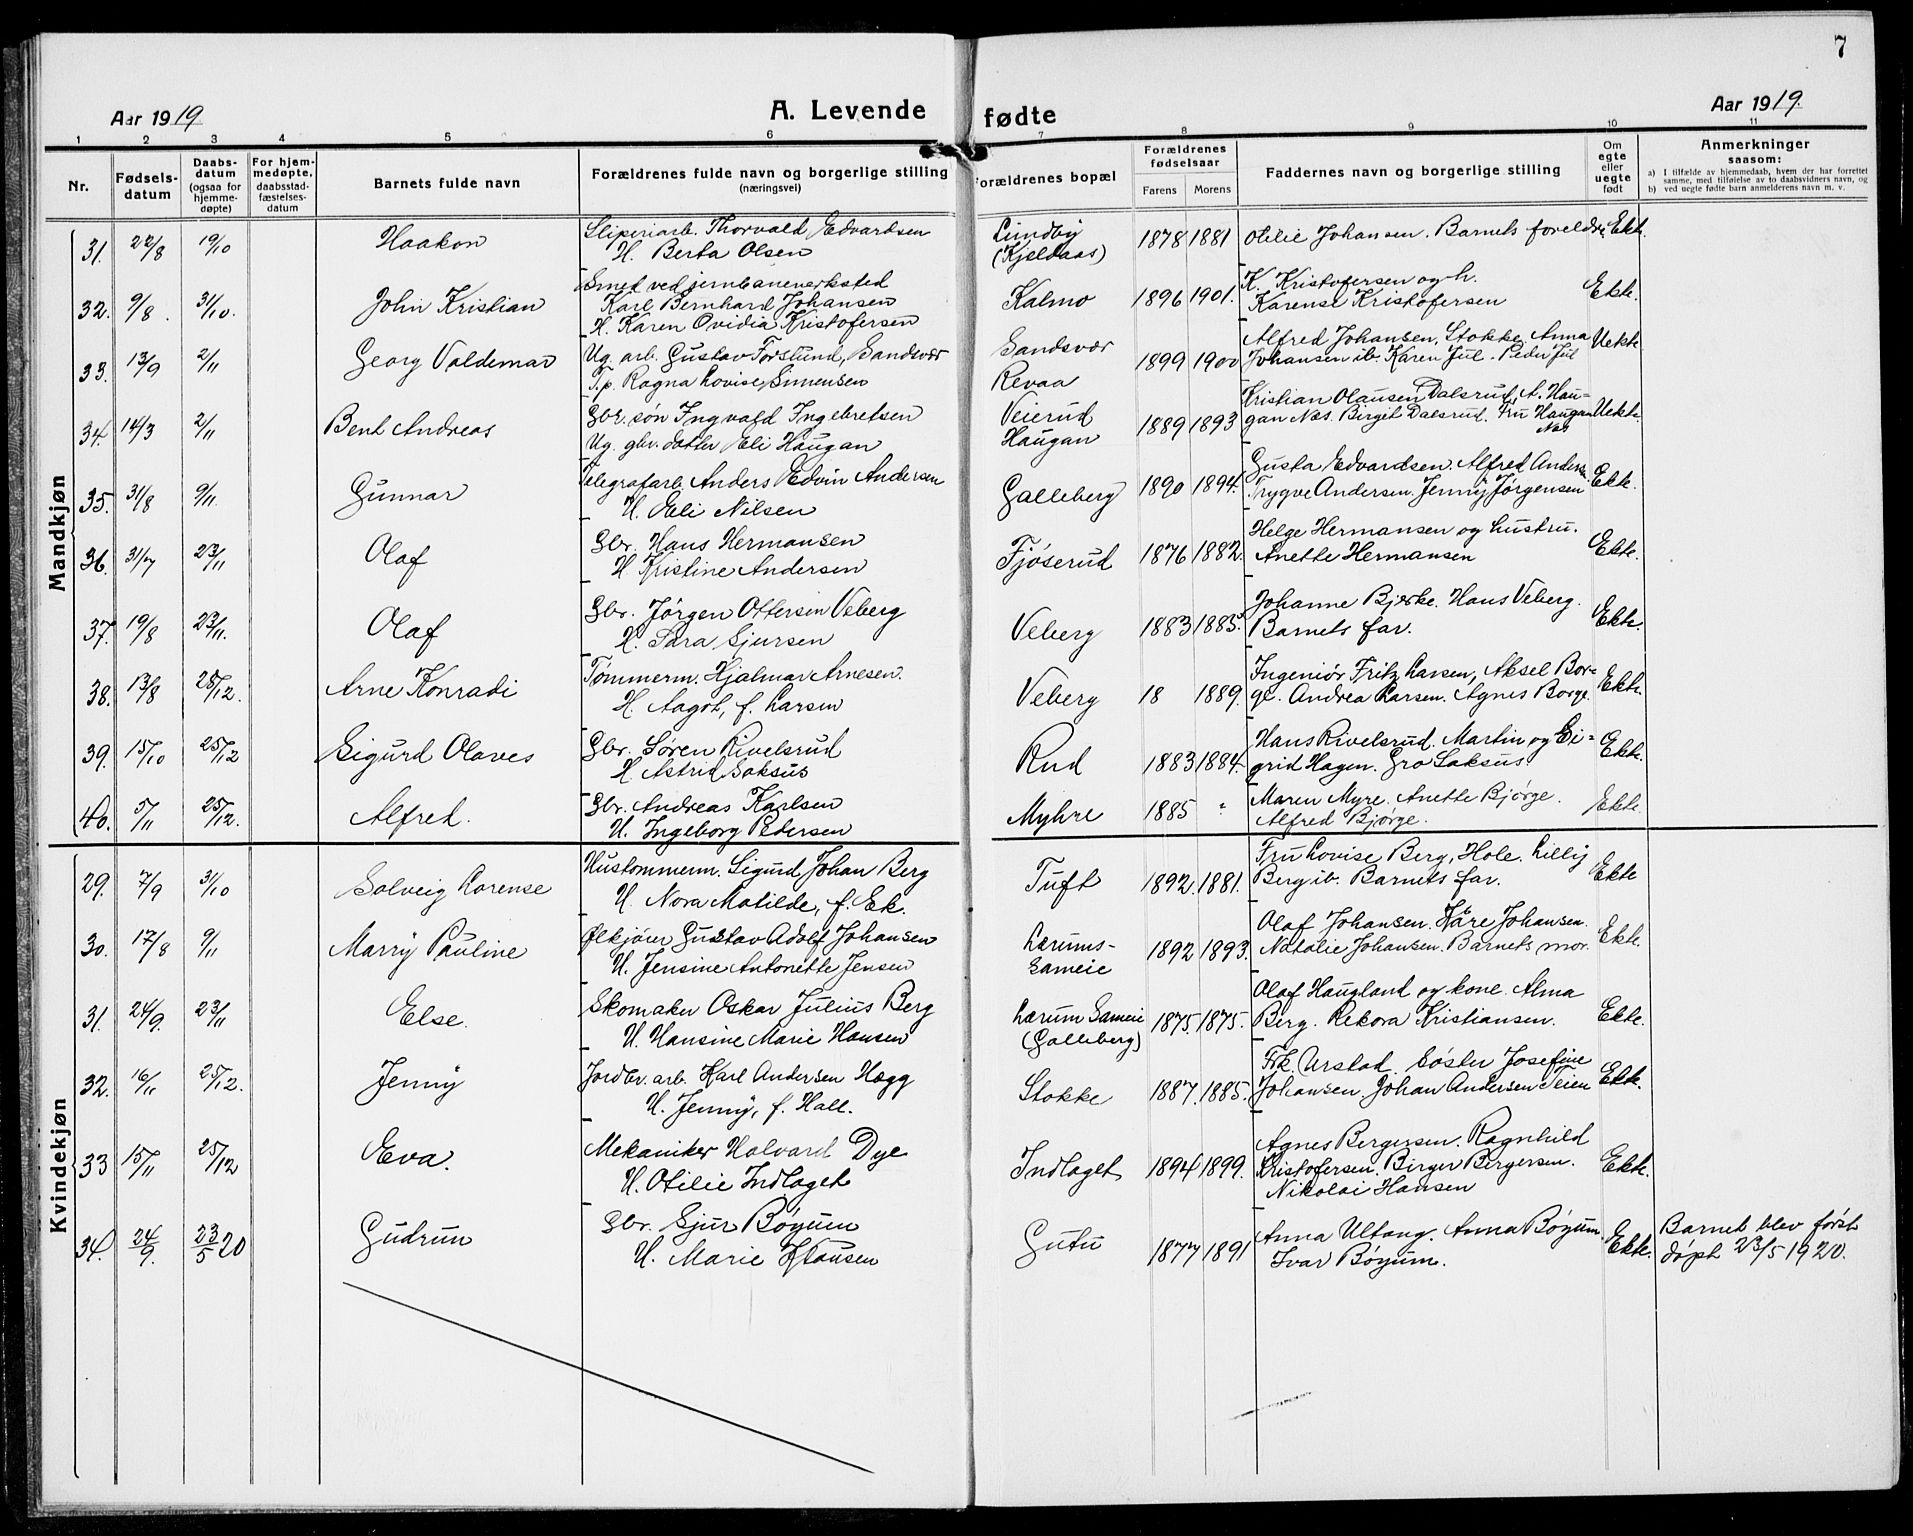 7
Aar 1919
A. Levende fødte
Aar 1919.
1 2 3 4 5 6 7 8 9 10 11
Nr.
Fødsels-
datum
Daabs-
datum
(ogsaa for
hjemme-
døpte)
For hjem-
medøpte,
daabsstad-
fæstelses-
datum
Barnets fulde navn
Forældrenes fulde navn og borgerlige stilling
(næringsvei)
Forældrenes bopæl
Forældrenes
fødselsaar
Farens Morens
Faddernes navn og borgerlige stilling
Om
egte
eller
uegte
født
Anmerkninger
saasom:
a) I tilfælde av hjemmedaab, hvem der har forrettet
samme, med tilføielse av to daabsvidners navn, og
b) ved uegte fødte barn anmelderens navn m. v.
Mandkjøn
31. 22/8 19/10 Haakon
Sliperiarb. Thorvald Edvardsen
H. Berta Olsen
Lundby
(Kjeldaas)
1878 1881 Otilie Johansen. Barnets foreldre. Ekte.
32. 9/8. 31/10. John Kristian
Smed ved jernbaneverksted
Karl Bernhard Johansen
H. Karen Ovidia Kristofersen
Kalmo 1896 1901.
K. Kristofersen og h.
Karense Kristofersen
Ekte.
33. 13/9 2/11 Georg Valdemar
Ug. arb. Gustav Forslund, Sandsvær
T.p. Ragna Lovise Simensen
Sandsvær
Revaa
1899 1900
Alfred Johansen, Stokke, Anna
Johansen ib. Karen Jul. Peder Jul
Uekte
34. 14/3 2/11 Bent Andreas
Gbr. søn Ingvald Ingebretsen
Ug. gbr. datter Eli Haugan
Veierud
Haugan
1889 1893
Kristian Olausen Dalsrud, A. Hau-
gan Næs. Birgit Dalsrud. Fru Haugan
Næs
Uekte
35. 31/8 9/11. Gunnar
Telegrafarb. Anders Edvin Andersen
H. Eli Nilsen
Galleberg 1890 1894.
Gusta Edvardsen. Alfred Andersen
Trygve Andersen. Jenny Jørgensen
Ekte.
36. 31/7 23/11 Olaf
Gbr. Hans Hermansen
H Kristine Andersen
Fjøserud 1876 1882.
Helge Hermansen og hustru.
Anette Hermansen
Ekte.
37. 19/8 23/11. Olaf
Gbr. Jørgen Ottersen Veberg
H. Sara Sjursen
Veberg 1883 1885.
Johanne Bjerke. Hans Veberg.
Barnets far.
Ekte.
38. 13/8 25/12. Arne Konradi
Tømmerm. Hjalmar Arnesen.
H. Aagot, f. Larsen
Veberg 18 1889.
Ingeniør Fritz Larsen, Aksel Bor-
ge. Andrea Larsen. Agnes Borge.
Ekte.
39. 15/10 25/12 Sigurd Olaves
Gbr. Søren Rivelsrud
H. Astrid Saksus
Rud 1883 1884.
Hans Rivelsrud. Martin og Si-
grid Hagen. Gro Saksus.
Ekte.
40. 5/11 25/12. Alfred.
Gbr. Andreas Karlsen
H. Ingeborg Pedersen
Myhre 1885 "
Maren Myre. Anette Bjørge.
Alfred Bjørge.
Ekte.
Kvindekjøn
29. 7/9 31/10 Solveig Lorense
Hustømmerm. Sigurd Johan Berg
H. Nora Matilde, f. Ek.
Tuft 1892. 1881.
Fru Lovise Berg, Hole. Lilly
Berg ib. Barnets far.
Ekte
30. 17/8 9/11 Marry Pauline
Ølkjører Gustav Adolf Johansen
H. Jensine Antonette Jensen
Lærums-
Sameie
1892 1893.
Olaf Johansen. Kåre Johansen.
Natalie Johansen. Barnets mor.
Ekte.
31. 24/9. 23/11 Else.
Skomaker Oskar Julius Berg
H. Hansine Marie Hansen
Lærum Sameie
(Galleberg)
1875. 1875.
Olaf Haugland og kone. Alma
Berg. Rekora Kristiansen.
Ekte.
32. 16/11 25/12. Jenny
Jordbr. arb. Karl Andersen Hægg
H. Jenny, f. Hall.
Stokke 1887. 1885.
Frk. Urstad. Søster Josefine
Johansen. Johan Andersen Teien
Ekte.
33 15/11 25/12 Eva.
Mekaniker Halvard Dye
H. Otilie Indlaget
Indlaget 1894 1899.
Agnes Bergersen. Ragnhild
Kristofersen. Birger Bergersen.
Nikolai Hansen
Ekte.
34. 24/9. 23/5 20 Gudrun
Gbr. Sjur Bøyum
H. Marie Klausen
Gutu 1877 1891
Anna Ultang. Anna Bøyum
Ivar Bøyum.
Ekte.
Barnet blev først
døpt 23/5 1920.